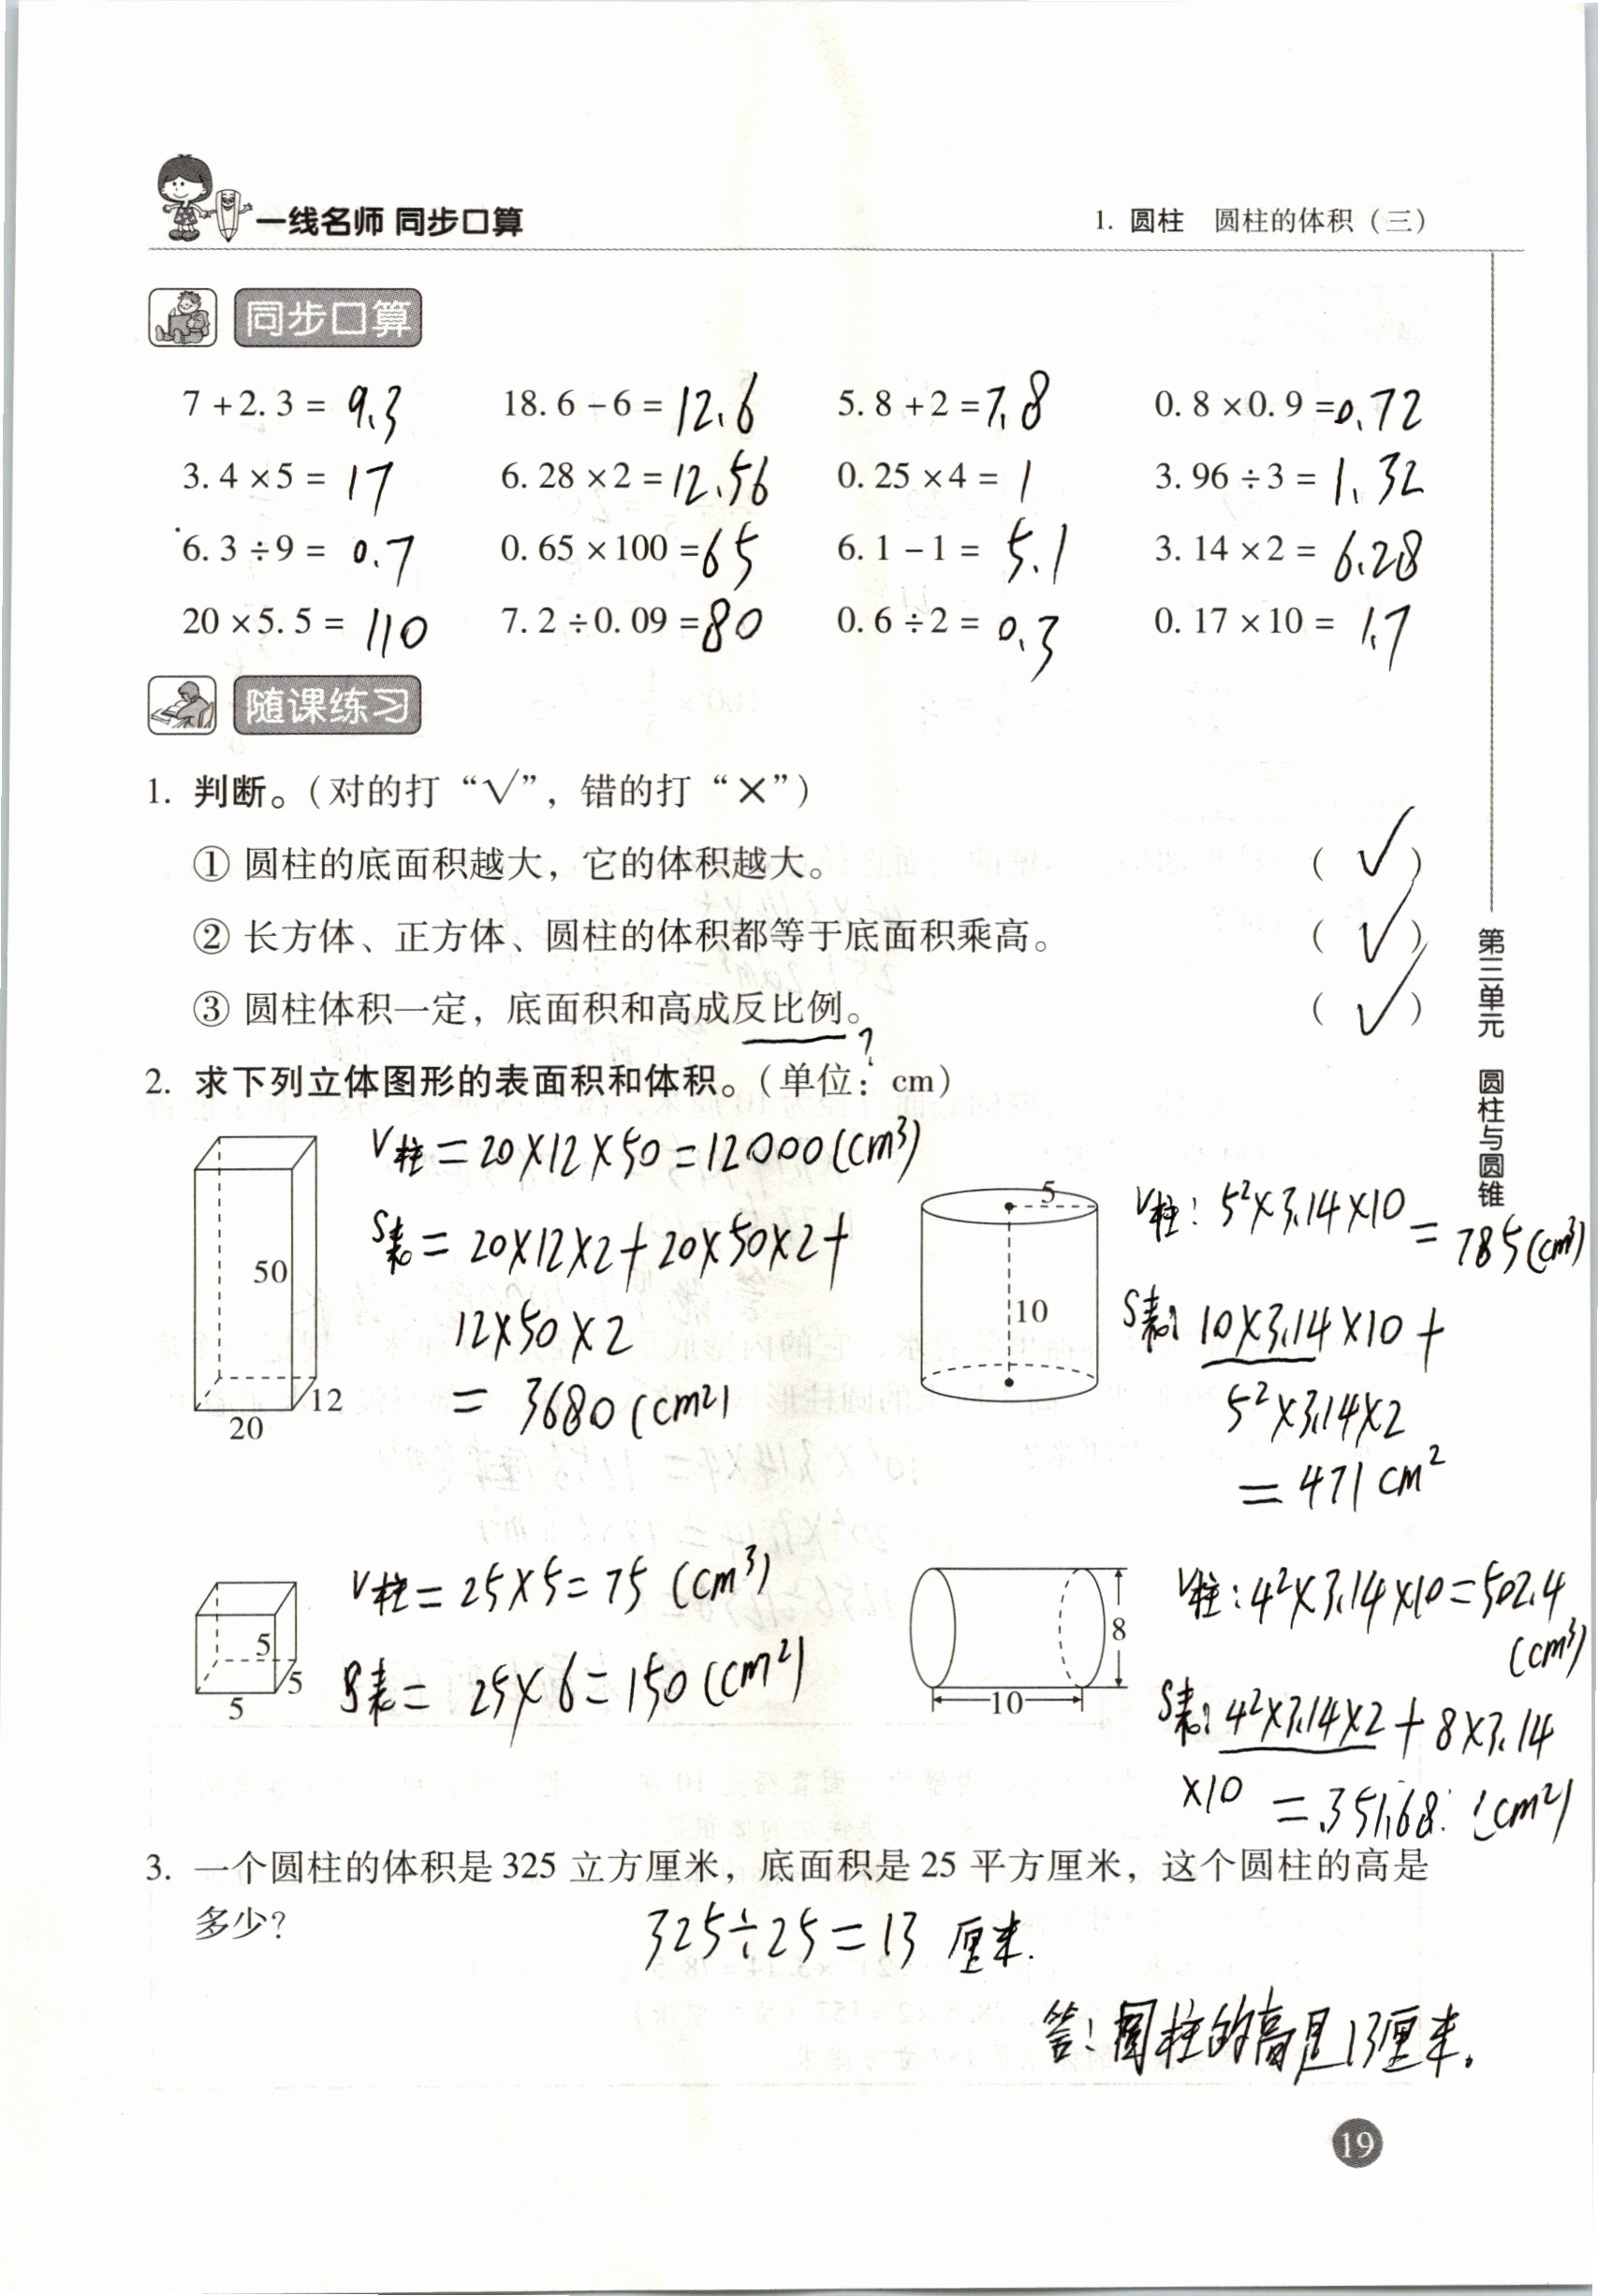 一线名师 同步口算
1. 圆柱 圆柱的体积（三）
同步口算
7 + 2.3 = 9.3 18.6 - 6 = 12.6 5.8 + 2 = 7.8 0.8 × 0.9 = 0.72
3.4 × 5 = 17 6.28 × 2 = 12.56 0.25 × 4 = 1 3.96 ÷ 3 = 1.32
6.3 ÷ 9 = 0.7 0.65 × 100 = 65 6.1 - 1 = 5.1 3.14 × 2 = 6.28
20 × 5.5 = 110 7.2 ÷ 0.09 = 80 0.6 ÷ 2 = 0.3 0.17 × 10 = 1.7
随课练习
1. 判断。（对的打“√”，错的打“×”）
① 圆柱的底面积越大，它的体积越大。 （ √ ）
② 长方体、正方体、圆柱的体积都等于底面积乘高。 （ √ ）
③ 圆柱体积一定，底面积和高成反比例。 （ √ ）
?
2. 求下列立体图形的表面积和体积。（单位：cm）
50
12
20
V柱 = 20×12×50 = 12000 (cm³)
S表 = 20×12×2 + 20×50×2 +
12×50×2
= 3680 (cm²)
5
10
V柱: 5²×3.14×10
= 785 (cm³)
S表: 10×3.14×10 +
5²×3.14×2
= 471 cm²
5
5
5
V柱 = 25×5 = 75 (cm³)
S表 = 25×6 = 150 (cm²)
8
10
V柱: 4²×3.14×10 = 502.4
(cm³)
S表: 4²×3.14×2 + 8×3.14
×10 = 351.68 (cm²)
3. 一个圆柱的体积是 325 立方厘米，底面积是 25 平方厘米，这个圆柱的高是
多少？
325÷25 = 13 厘米.
答: 圆柱的高是13厘米。
第三单元 圆柱与圆锥
19